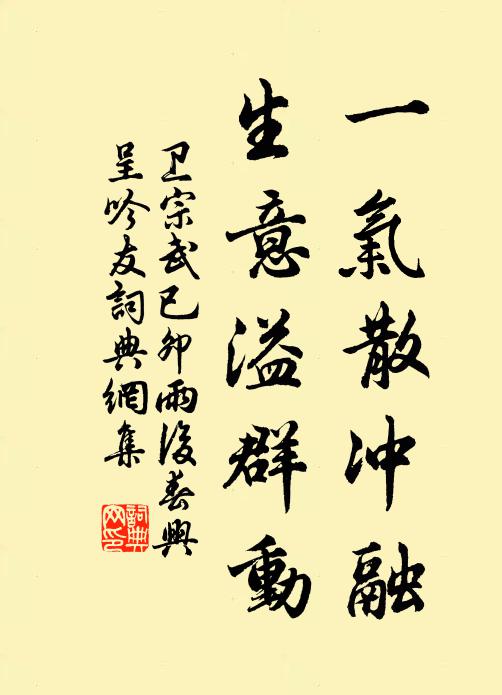 一氣散冲融
生意溢群動
卫宗武己卯雨後春興
呈吟友詞典網集
詞典
网印